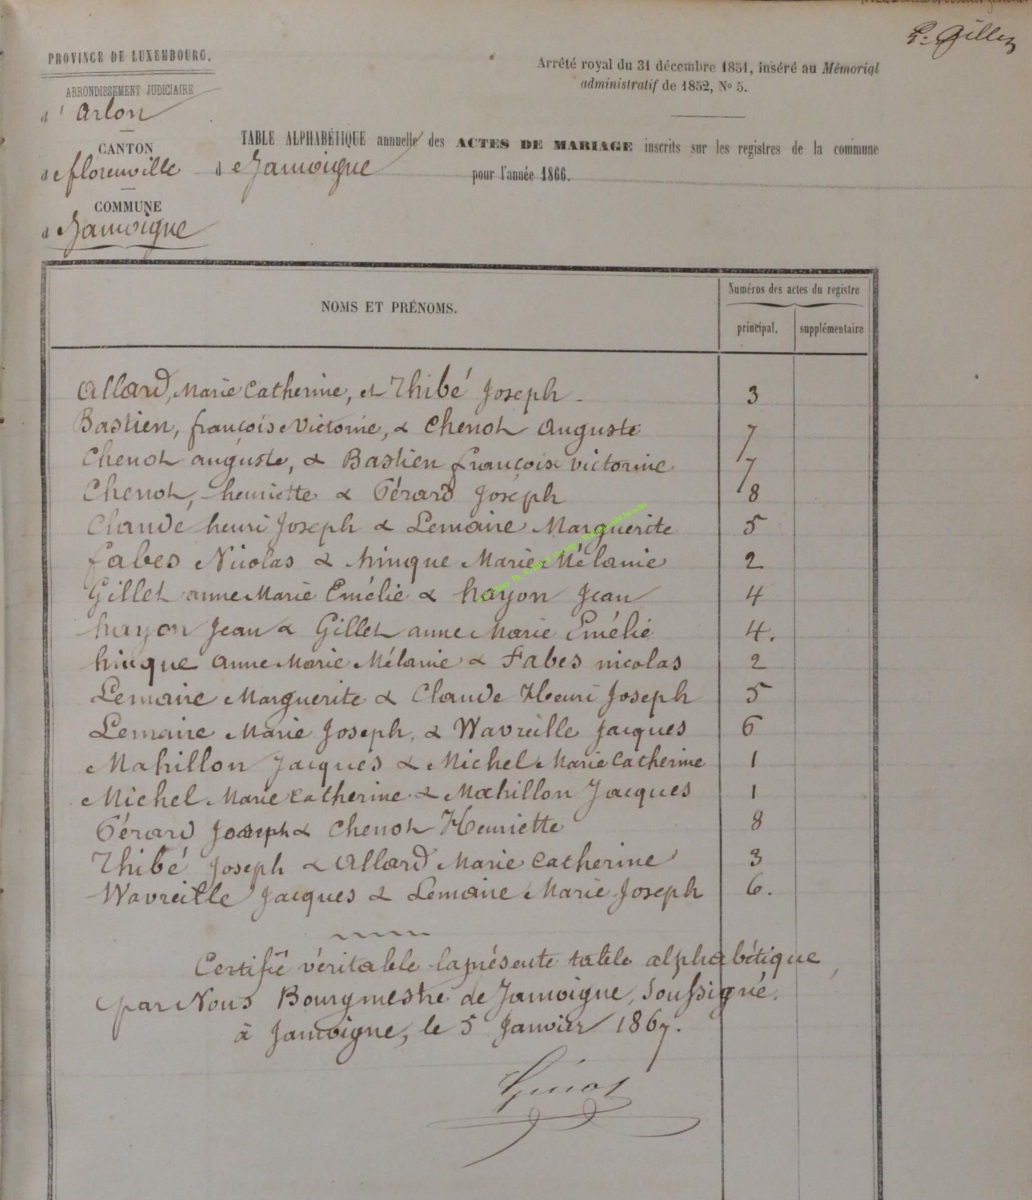 L. Gillet
PROVINCE DE LUXEMBOURG.
ARRONDISSEMENT JUDICIAIRE
d'Arlon
CANTON
de florenville
COMMUNE
d Jamoigne
Arrêté royal du 31 décembre 1851, inséré au Mémorial
administratif de 1852, No 5.
TABLE ALPHABÉTIQUE annuelle des ACTES DE MARIAGE inscrits sur les registres de la commune
de Jamoigne pour l'année 1866.
NOMS ET PRÉNOMS.
Numéros des actes du registre
principal. supplémentaire
Allard, Marie Catherine, et Thibé Joseph. 3
Bastien, françoise Victorine, & Chenot Auguste 7
Chenot auguste, & Bastien françoise victorine 7
Chenot, henriette & Gérard Joseph 8
Claude henri Joseph & Lemaire Marguerite 5
fabes Nicolas & hinque Marie Mélanie 2
Gillet anne Marie Emélie & hayon Jean 4
hayon Jean & Gillet anne Marie Emélie 4.
hinque anne Marie Mélanie & Fabes nicolas 2
Lemaire Marguerite & Claude Henri Joseph 5
Lemaire Marie Joseph, & Wavreille Jacques 6
Mahillon Jacques & Michel Marie Catherine 1
Michel Marie Catherine & Mahillon Jacques 1
Gérard Joseph & Chenot Henriette 8
Thibé Joseph & Allard Marie Catherine 3
Wavreille Jacques & Lemaire Marie Joseph 6.
Certifié véritable la présente table alphabétique,
par Nous Bourgmestre de Jamoigne, Soussigné.
à Jamoigne, le 5 Janvier 1867.